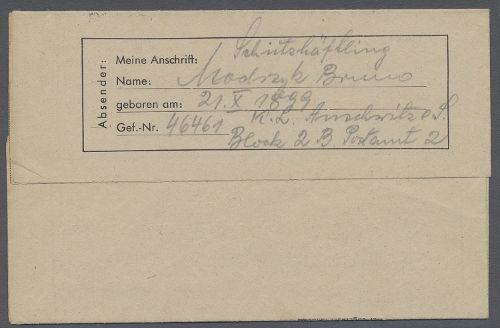 Absender:
Meine Anschrift: Schutzhäftling
Name: Modrzyk Bruno
geboren am: 21. X 1899
Gef.-Nr. 46461 K. L. Auschwitz O. S.
Block 2 B Postamt 2